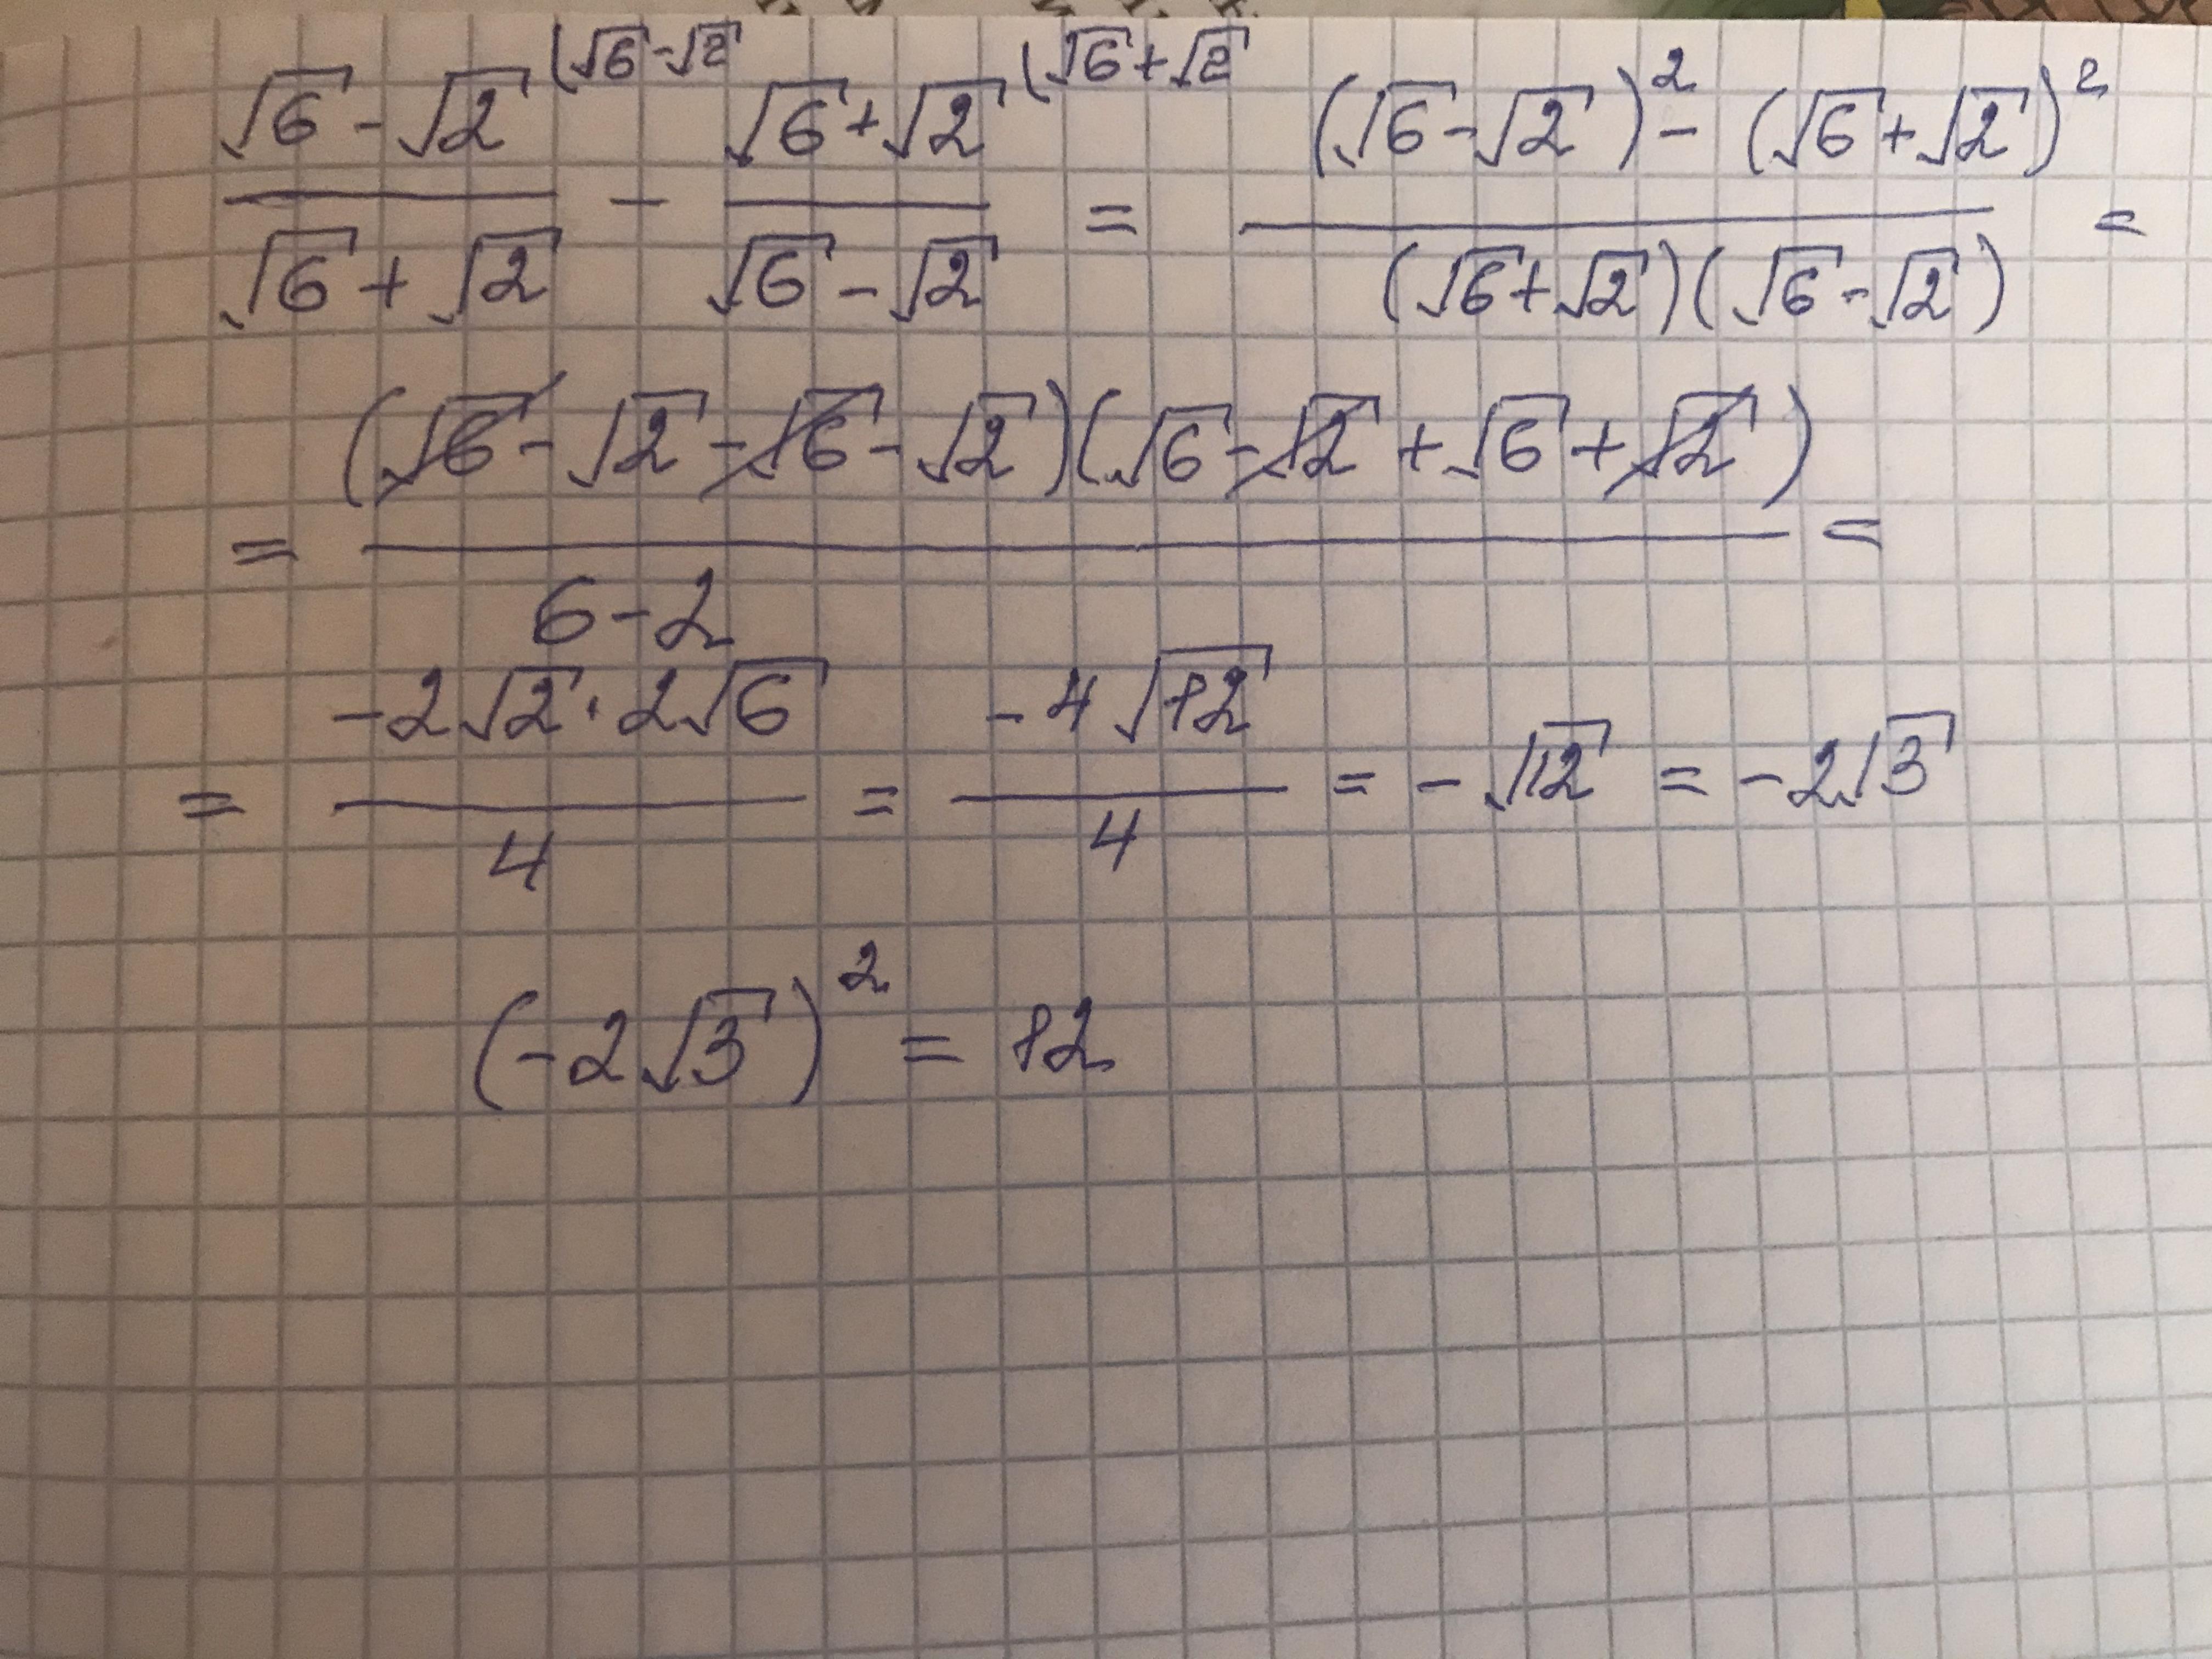 (√6-√2 (√6+√2
(√6 - √2)/(√6 + √2) - (√6+√2)/(√6-√2) = ((√6-√2)² - (√6+√2)²)/((√6+√2)(√6-√2)) =
= ((√6 - √2 - √6 - √2)(√6 - √2 + √6 + √2))/(6-2) =
= (-2√2 · 2√6)/4 = (-4√12)/4 = -√12 = -2√3
(-2√3)² = 12